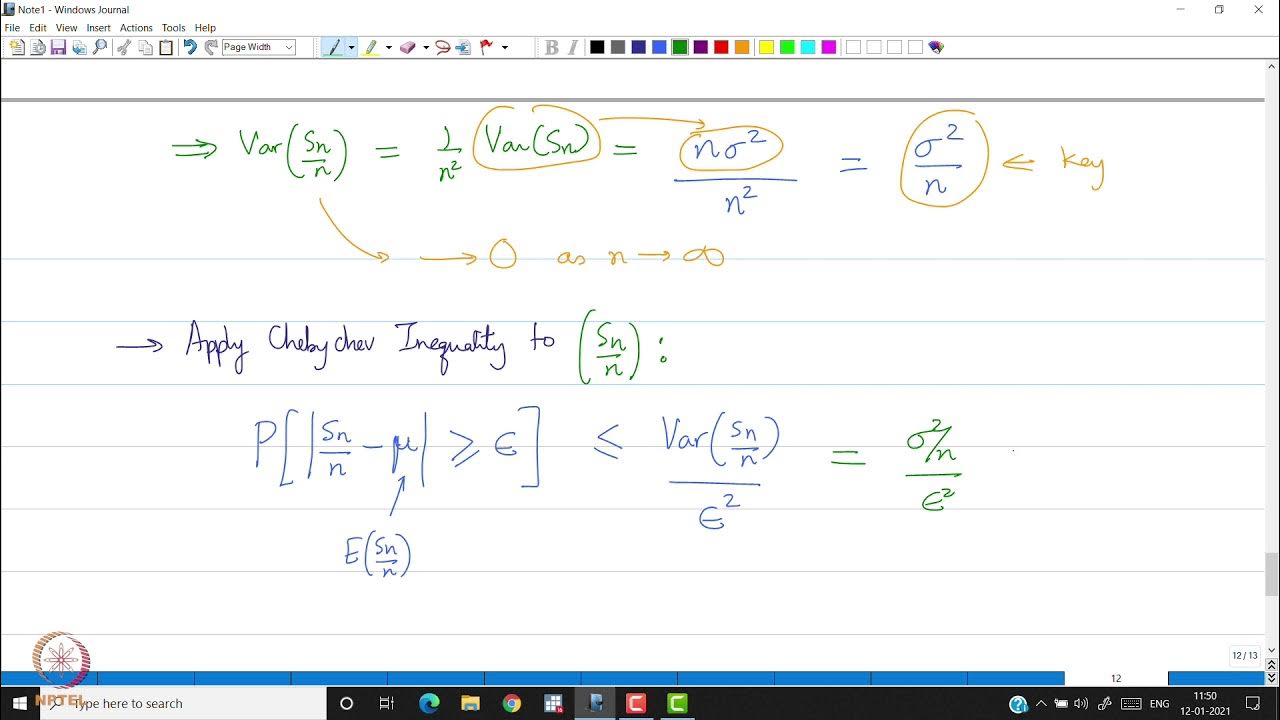 Note1 - Windows Journal
File Edit View Insert Actions Tools Help
Page Width
B I
⇒ Var(Sn/n) = 1/n² Var(Sn) = nσ²/n² = σ²/n ← key
→ 0 as n → ∞
→ Apply Chebychev Inequality to (Sn/n) :
P[|Sn/n − μ| ⩾ ϵ] ≤ Var(Sn/n)/ϵ² = σ²/n/ϵ²
E(Sn/n)
12 / 13
12
NPTEL
Type here to search
ENG
11:50
12-01-2021